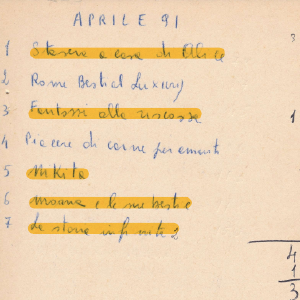 APRILE 91
1 Stasera a casa di Alice
2 Rome Bestial Luxury
3 Fantozzi alla riscossa
4 Piacere di carne per amanti
5 Nikita
6 Moana e le sue bestie
7 La storia infinita 2
3
1
4
1
3